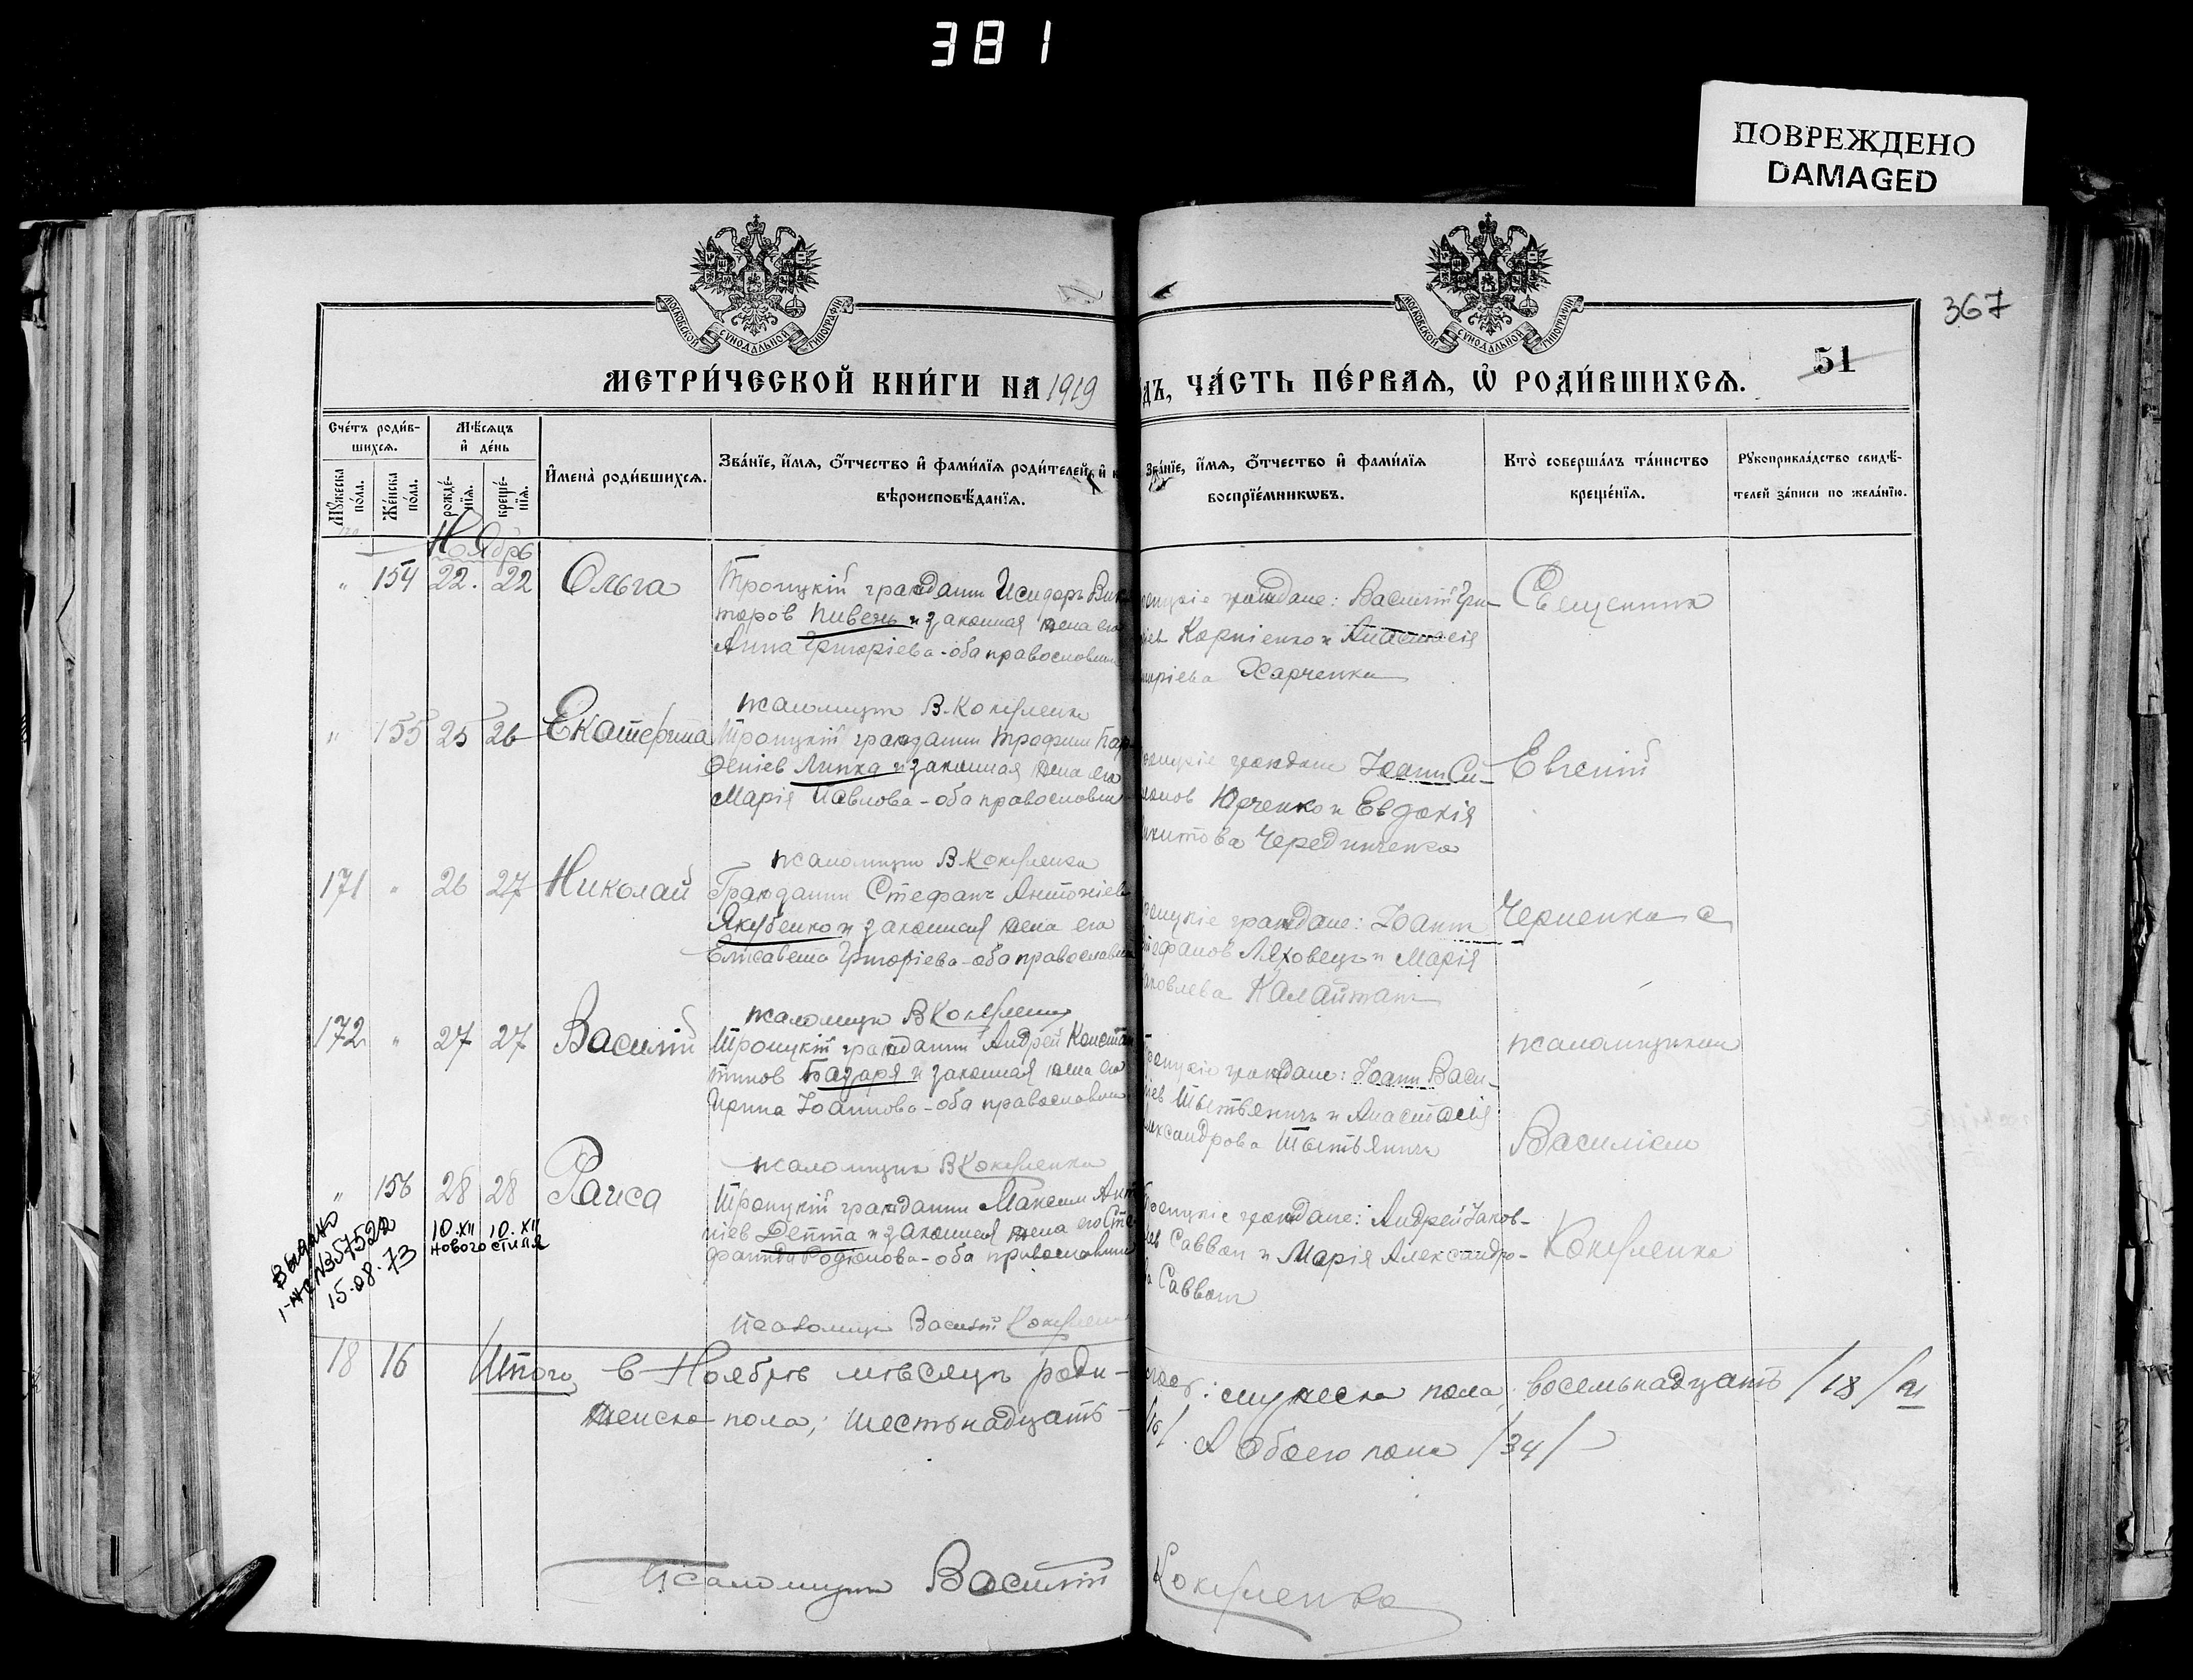 381
ПОВРЕЖДЕНО
DAMAGED
МОСКОВСКОЙ СѴНОДАЛЬНОЙ ТИПОГРАФІИ
МОСКОВСКОЙ СѴНОДАЛЬНОЙ ТИПОГРАФІИ
367
51
МЕТРИ́ЧЕСКОЙ КНИ́ГИ НА 1919
ДЪ, ЧА́СТЬ ПЕ́РВАѦ, Ѽ РОДИ́ВШИХСѦ.
Сче́тъ роди́в-
шихсѧ.
Мꙋжеска по́ла.
Же́нска по́ла.
Мѣ́сѧцъ
и҆ де́нь
рожде́-
нїѧ.
креще́-
нїѧ.
И҆мена̀ роди́вшихсѧ.
Зва́нїе, и҆́мѧ, о҆́тчество и҆ фами́лїѧ роди́телей, и҆ к
вѣроисповѣ́данїѧ.
Зва́нїе, и҆́мѧ, о҆́тчество и҆ фами́лїѧ
воспрїе́мникѡвъ.
Кто̀ соверша́лъ та́инство
креще́нїѧ.
Рꙋкоприкла́дство свидѣ́-
телей за́писи по жела́нїю.
Ноябрь
" 154 22. 22 Ольга
Троицкій гражданин Исидоръ Вик
торов Пивень и законная жена его
Анна Григоріева - оба православни
гроицкіе граждане: Василій Гри-
ріев Корніенко и Анастасія
горіева Харченко
Священник
псаломщик В. Кокуленко
" 155 25 26 Екатерина
Троицкій гражданин Трофим Пар
ѳеніев Липка и законная жена его
Марія Павлова - оба православни
роицкіе граждане Іоанн Си-
монов Юрченко и Евдокія
икитова Чередниченко
Евгеній
псаломщик В. Кокуленко
171 " 26 27 Николай
Гражданин Стефанъ Антоніев
Якубенко и законная жена его
Елисавета Григоріева - оба православни
роицкіе граждане: Іоанн
тефанов Ляховецъ и Марія
аковлева Калайтан
Черненко с
псаломщик В Кокуленко
172 " 27 27 Василій
Троицкій гражданин Андрей Констан
тинов Базаря и законная жена его
Ирина Іоаннова - оба православни
Троицкіе граждане: Іоанн Васи-
ліев и Анастасія
лександрова
псаломщиком
Василіем
псаломщик В Кокуленко
" 156 28 28 Раиса
10.XII 10.XII
нового стиля
Выдано
№ 357522
15.08.73
Троицкій гражданин Максим Ант
ніев Депта и законная жена его Сте
фанида Родіонова - оба православни
Троицкіе граждане: Андрей Іаков-
лев Саввон и Марія Александро-
ва Саввон
Кокуленко
Псаломщик Василій Кокуленко
18 16 Итого в Ноябрѣ мѣсяцѣ роди-
лось: мужеска пола: восемьнадцать /18/ и
Женска пола; шестьнадцать
/16/. А обоего пола /34/
Псаломщик Василій Кокуленко